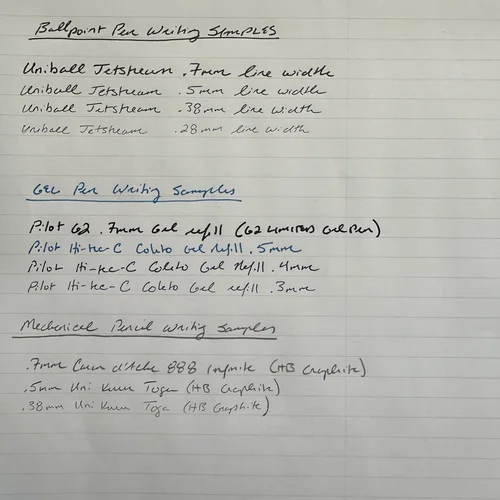 Ballpoint Pen Writing Samples
Uniball Jetstream .7mm line width
Uniball Jetstream .5mm line width
Uniball Jetstream .38mm line width
Uniball Jetstream .28mm line width
Gel Pen Writing Samples
Pilot G2 .7mm Gel refill (G2 Limited Gel Pen)
Pilot Hi-tec-C Coleto Gel refill .5mm
Pilot Hi-tec-C Coleto Gel refill .4mm
Pilot Hi-tec-C Coleto Gel refill .3mm
Mechanical Pencil Writing Samples
.7mm Caran d'Ache 888 Infinite (HB Graphite)
.5mm Uni Kuru Toga (HB Graphite)
.38mm Uni Kuru Toga (HB Graphite)